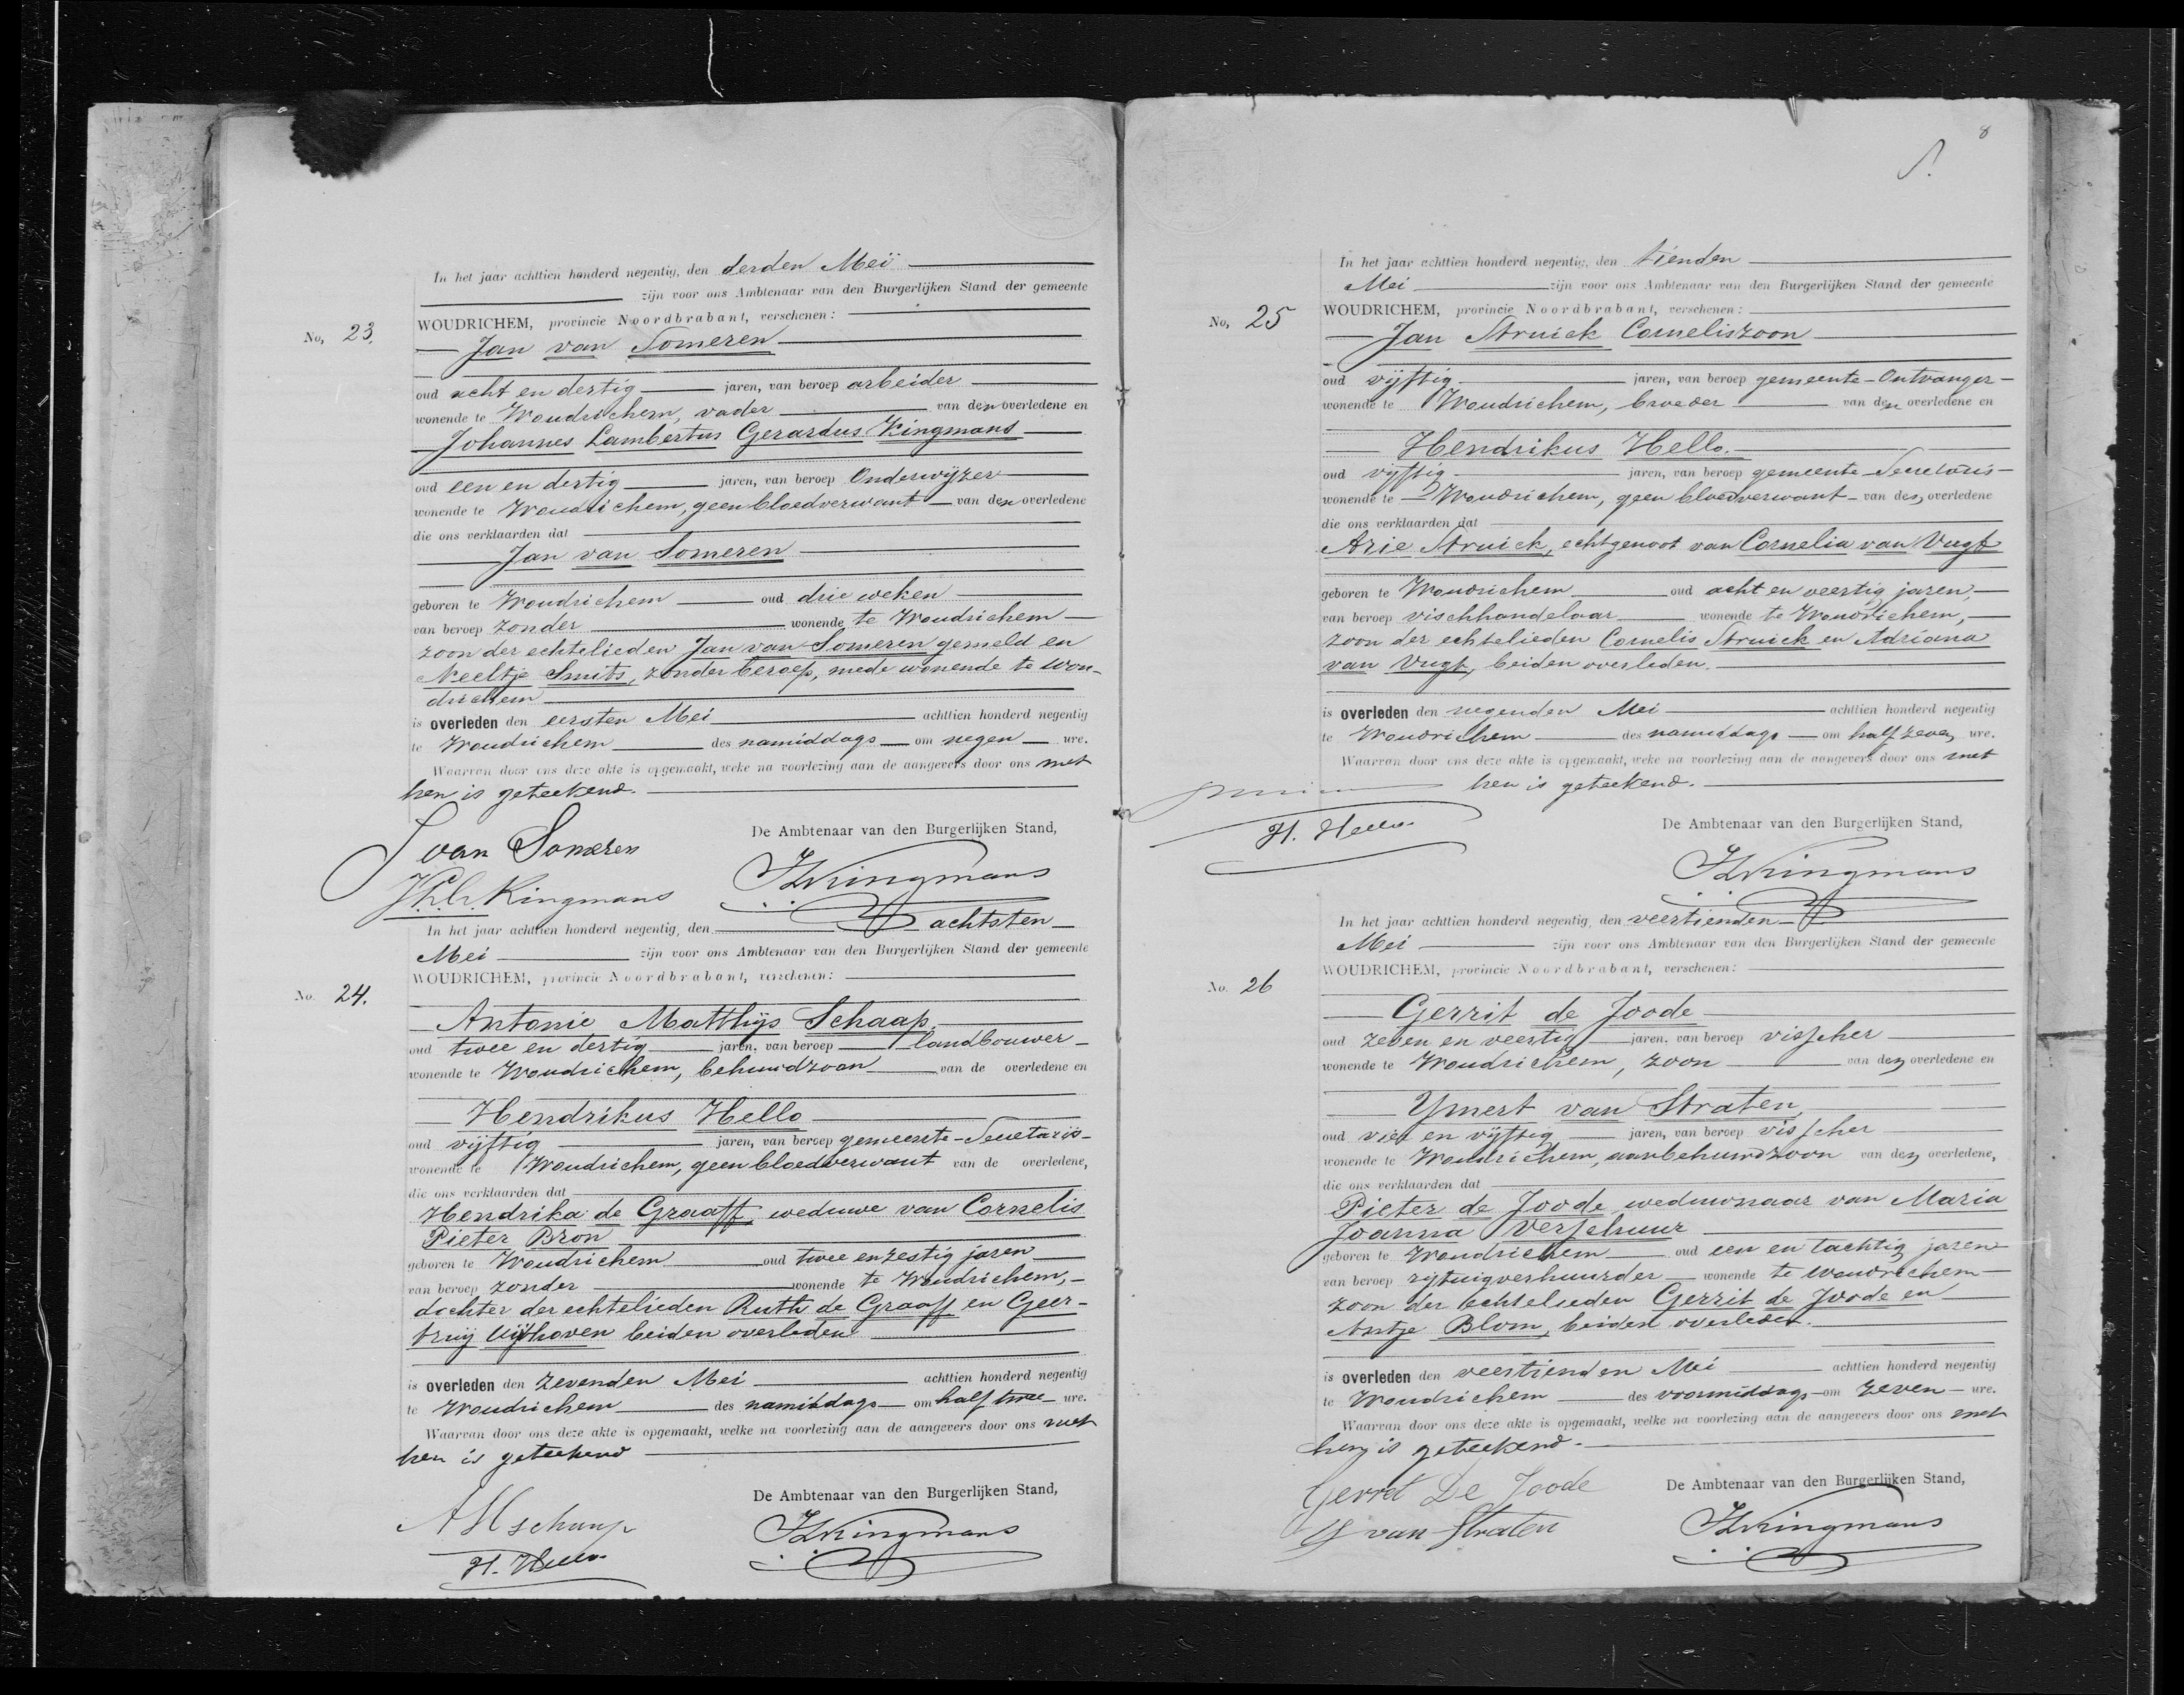 In het jaar achttien honderd negentig, den derden Meï
zijn voor ons Ambtenaar van den Burgerlijken Stand der gemeente
No, 23. WOUDRICHEM, provincie Noordbrabant, verschenen:
Jan van Someren
oud acht en dertig jaren, van beroep arbeider
wonende te Woudrichem, vader van den overledene en
Johannes Lambertus Gerardus Kingmans
oud een en dertig jaren, van beroep Onderwijzer
wonende te Woudrichem, geen bloedverwant van den overledene
die ons verklaarden dat
Jan van Someren
geboren te Woudrichem oud drie weken
van beroep zonder wonende te Woudrichem
zoon der echtelieden Jan van Someren gemeld en
Neeltje Smits, zonder beroep, mede wonende te Wou-
drichem
is overleden den eersten Mei achttien honderd negentig
te Woudrichem des namiddags om negen ure.
Waarvan door ons deze akte is opgemaakt, weke na voorlezing aan de aangevers door ons met
hen is geteekend.
De Ambtenaar van den Burgerlijken Stand,
J van Someren
Kingmans
Kingmans
In het jaar achttien honderd negentig, den achtsten
Mei zijn voor ons Ambtenaar van den Burgerlijken Stand der gemeente
WOUDRICHEM, provincie Noordbrabant, verschenen:
No. 24.
Antonie Matthijs Schaap
oud twee en dertig jaren, van beroep landbouwer
wonende te Woudrichem, behuwdzoon van de overledene en
Hendrikus Hello
oud vijftig jaren, van beroep gemeente-Secretaris
wonende te Woudrichem, geen bloedverwant van de overledene,
die ons verklaarden dat
Hendrika de Graaff, weduwe van Cornelis
Pieter Bron
geboren te Woudrichem oud twee en zestig jaren
van beroep zonder wonende te Woudrichem,
dochter der echtelieden Ruth de Graaff en Geer-
truij Uijthoven beiden overleden
is overleden den zevenden Mei achttien honderd negentig
te Woudrichem des namiddags om half twee ure.
Waarvan door ons deze akte is opgemaakt, welke na voorlezing aan de aangevers door ons met
hen is geteekend
De Ambtenaar van den Burgerlijken Stand,
AMSchaap
Kingmans
H. Hello
8
In het jaar achttien honderd negentig, den tienden
Mei zijn voor ons Ambtenaar van den Burgerlijken Stand der gemeente
No, 25 WOUDRICHEM, provincie Noordbrabant, verschenen:
Jan Struick Corneliszoon
oud vijftig jaren, van beroep gemeente-Ontvanger
wonende te Woudrichem, broeder van den overledene en
Hendrikus Hello.
oud vijftig jaren, van beroep gemeente-Secretaris
wonende te Woudrichem, geen bloedverwant van den overledene
die ons verklaarden dat
Arie Struick, echtgenoot van Cornelia van Vugt
geboren te Woudrichem oud acht en veertig jaren,
van beroep vischhandelaar wonende te Woudrichem,
zoon der echtelieden Cornelis Struick en Adriana
van Vugt, beiden overleden.
is overleden den negenden Mei achttien honderd negentig
te Woudrichem des namiddags om half zeven ure.
Waarvan door ons deze akte is opgemaakt, weke na voorlezing aan de aangevers door ons met
hen is geteekend.
H. Hello
De Ambtenaar van den Burgerlijken Stand,
Kingmans
In het jaar achttien honderd negentig, den veertienden
Mei zijn voor ons Ambtenaar van den Burgerlijken Stand der gemeente
WOUDRICHEM, provincie Noordbrabant, verschenen:
No. 26
Gerrit de Joode
oud zeven en veertig jaren, van beroep visscher
wonende te Woudrichem, zoon van den overledene en
Ymert van Straten,
oud vier en vijftig jaren, van beroep visscher
wonende te Woudrichem, aanbehuwdzoon van den overledene,
die ons verklaarden dat
Pieter de Joode, weduwnaar van Maria
Joanna Verschuur
geboren te Woudrichem oud een en tachtig jaren
van beroep rijtuigverhuurder wonende te Woudrichem
zoon der echtelieden Gerrit de Joode en
Antje Blom, beiden overleden.
is overleden den veertienden Mei achttien honderd negentig
te Woudrichem des voormiddags om zeven ure.
Waarvan door ons deze akte is opgemaakt, welke na voorlezing aan de aangevers door ons met
hen is geteekend.
De Ambtenaar van den Burgerlijken Stand,
Gerret De Joode
Y van Straten
Kingmans